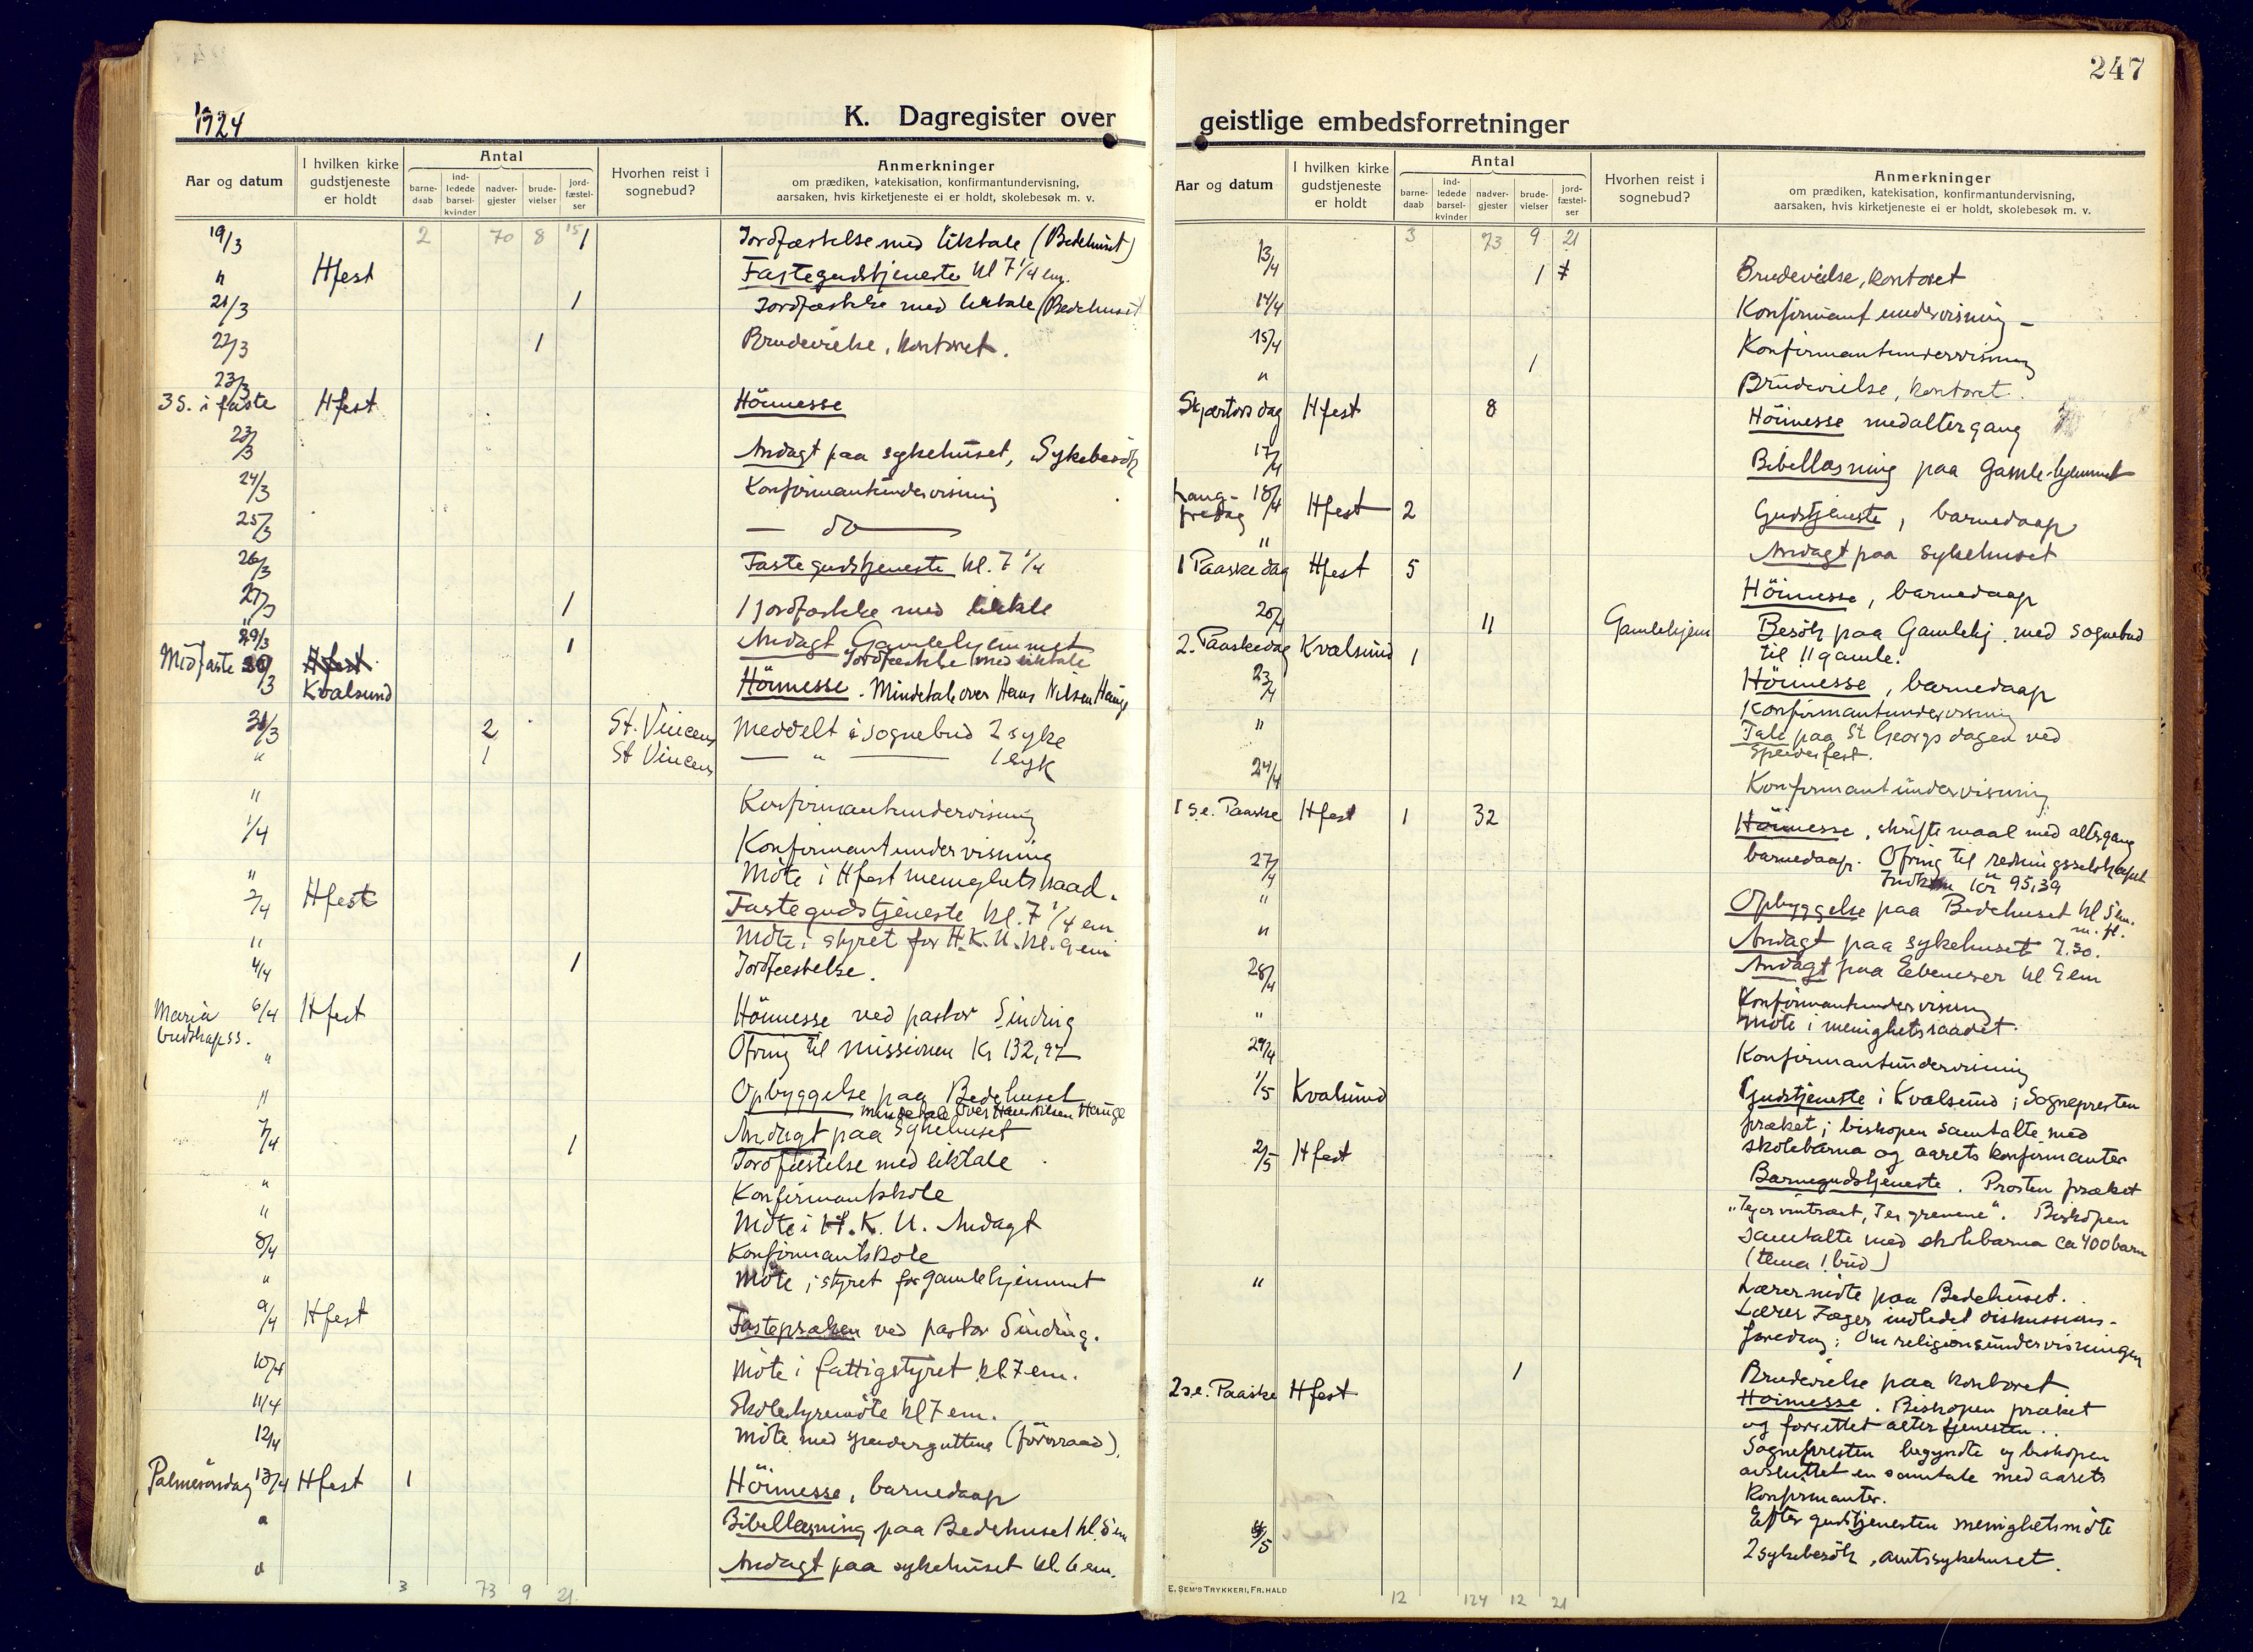 1924
K. Dagregister over
Aar og datum
I hvilken kirke gudstjeneste er holdt
Antal
barne-daab
ind-ledede barsel-kvinder
nadver-gjester
brude-vielser
jord-fæstel-ser
Hvorhen reist i sognebud?
Anmerkninger
om prædiken, katekisation, konfirmantundervisning,
aarsaken, hvis kirketjeneste ei er holdt, skolebesøk m. v.
2 70 8 15
19/3 1 Jordfæstelse med liktale (Bedehuset)
" Hfest Fastegudstjeneste kl 7 1/4 em.
21/3 1 Jordfæstelse med liktale (Bedehuset
22/3 1 Brudevielse, kontoret.
23/3
3 S. i faste Hfest Höimesse
23/3 Andagt paa sykehuset, Sykebesök
24/3 Konfirmantundervisning
25/3 — do —
26/3 Fastegudstjeneste kl. 7 1/4
27/3 1 1 jordfæstelse med liktale
" Andagt Gamlehjemmet
29/3 1 Jordfæstelse med liktale
Midfaste 30/3 Hfest
Kvalsund Höimesse. Mindetale over Hans Nilsen Hauge
31/3 2 St. Vincens Meddelt i sognebud 2 syke
" 1 St Vincens — " — 1 syk
" Konfirmantundervisning
1/4 Konfirmantundervisning
" Möte i Hfest menighetsraad.
2/4 Hfest Fastegudstjeneste kl. 7 1/4 em
" Möte i styret for H.K.U. kl. 9 em
4/4 1 Jordfæstelse.
Maria budskapss. 6/4 Hfest Höimesse ved pastor Sinding
Ofring til missionen Kr 132,97
" Opbyggelse paa Bedehuset
mindetale over Hans Nilsen Hauge
" Andagt paa Sykehuset
7/4 1 Jordfæstelse med liktale
" Konfirmantskole
" Möte i H.K.U. Andagt
8/4 Konfirmantskole
" Möte i styret for gamlehjemmet
9/4 Hfest Fasteprækken ved pastor Sinding.
10/4 Möte i fattigstyret kl. 7 em.
11/4 Skolestyremöte kl 7 em.
12/4 Möte med speiderguttene (förerraad).
Palmesöndag 13/4 Hfest 1 Höimesse, barnedaap
" Bibellæsning paa Bedehuset kl. 5 em
" Andagt paa sykehuset kl. 6 em.
3 73 9 21
247
geistlige embedsforretninger
Aar og datum
I hvilken kirke gudstjeneste er holdt
Antal
barne-daab
ind-ledede barsel-kvinder
nadver-gjester
brude-vielser
jord-fæstel-ser
Hvorhen reist i sognebud?
Anmerkninger
om prædiken, katekisation, konfirmantundervisning,
aarsaken, hvis kirketjeneste ei er holdt, skolebesøk m. v.
3 73 9 21
13/4 1 Brudevielse, kontoret
14/4 Konfirmantundervisning –
15/4 Konfirmantundervisning
" 1 Brudevielse, kontoret.
Skjærtorsdag Hfest 8 Höimesse med altergang
17/4 Bibellæsning paa Gamlehjemmet
Langfredag 18/4 Hfest 2 Gudstjeneste, barnedaap
" Andagt paa sykehuset
1 Paaskedag Hfest 5 Höimesse, barnedaap
20/4 11 Gamlehjem Besök paa Gamlehj. med sognebud
til 11 gamle.
2. Paaskedag Kvalsund 1 Höimesse, barnedaap
23/4 Konfirmantundervisning
" Tale paa St Georgs dagen ved
Speiderfest.
24/4 Konfirmantundervisning
1 s.e. Paaske Hfest 1 32 Höimesse, skriftemaal med altergang
27/4 barnedaap. Ofring til redningsselskapet
Indkom kr 95,39
" Opbyggelse paa Bedehuset kl 5 em.
m. fl.
" Andagt paa sykehuset 7.30.
Andagt paa Ebeneser kl 9 em
28/4 Konfirmantundervisning
" Möte i menighetsraadet.
29/4 Konfirmantundervisning
1/5 Kvalsund Gudstjeneste i Kvalsund; Sognepresten
præket; biskopen samtalte med
skolebarna og aarets konfirmanter
2/5 Hfest Barnegudstjeneste. Prosten præket
"Jeg er vintræet, I er grenene". Biskopen
samtalte med skolebarna ca 400 barn
(tema 1. bud)
" Lærermöte paa Bedehuset.
Lærer Zager indledet diskussions-
foredrag: Om religionsundervisningen
1 Brudevielse paa kontoret
2 s.e. Paaske Hfest Höimesse. Biskopen præket
og forrettet altertjenesten.
Sognepresten begyndte og biskopen
avsluttet en samtale med aarets
konfirmanter.
Efter gudstjenesten menighetsmöte
4/5 2 sykebesök, amtssykehuset.
E. SEM'S TRYKKERI, FR.HALD
12 124 12 21